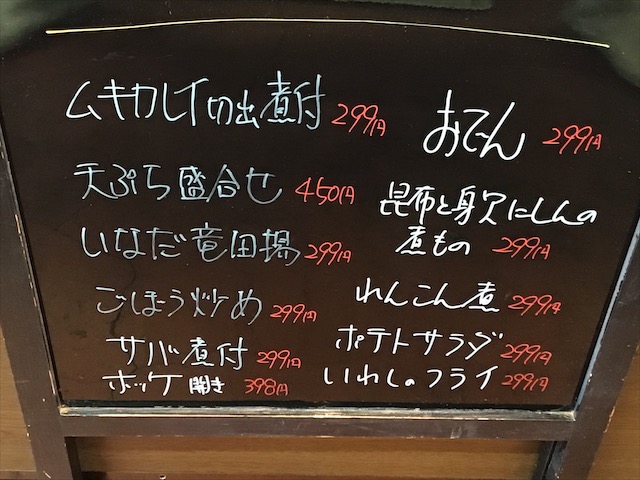 ムキカレイの煮付 299円
天ぷら盛合せ 450円
いなだ竜田揚 299円
ごぼう炒め 299円
サバ煮付 299円
ホッケ開き 398円
おでん 299円
昆布と身欠にしんの
煮もの 299円
れんこん煮 299円
ポテトサラダ 299円
いわしのフライ 299円